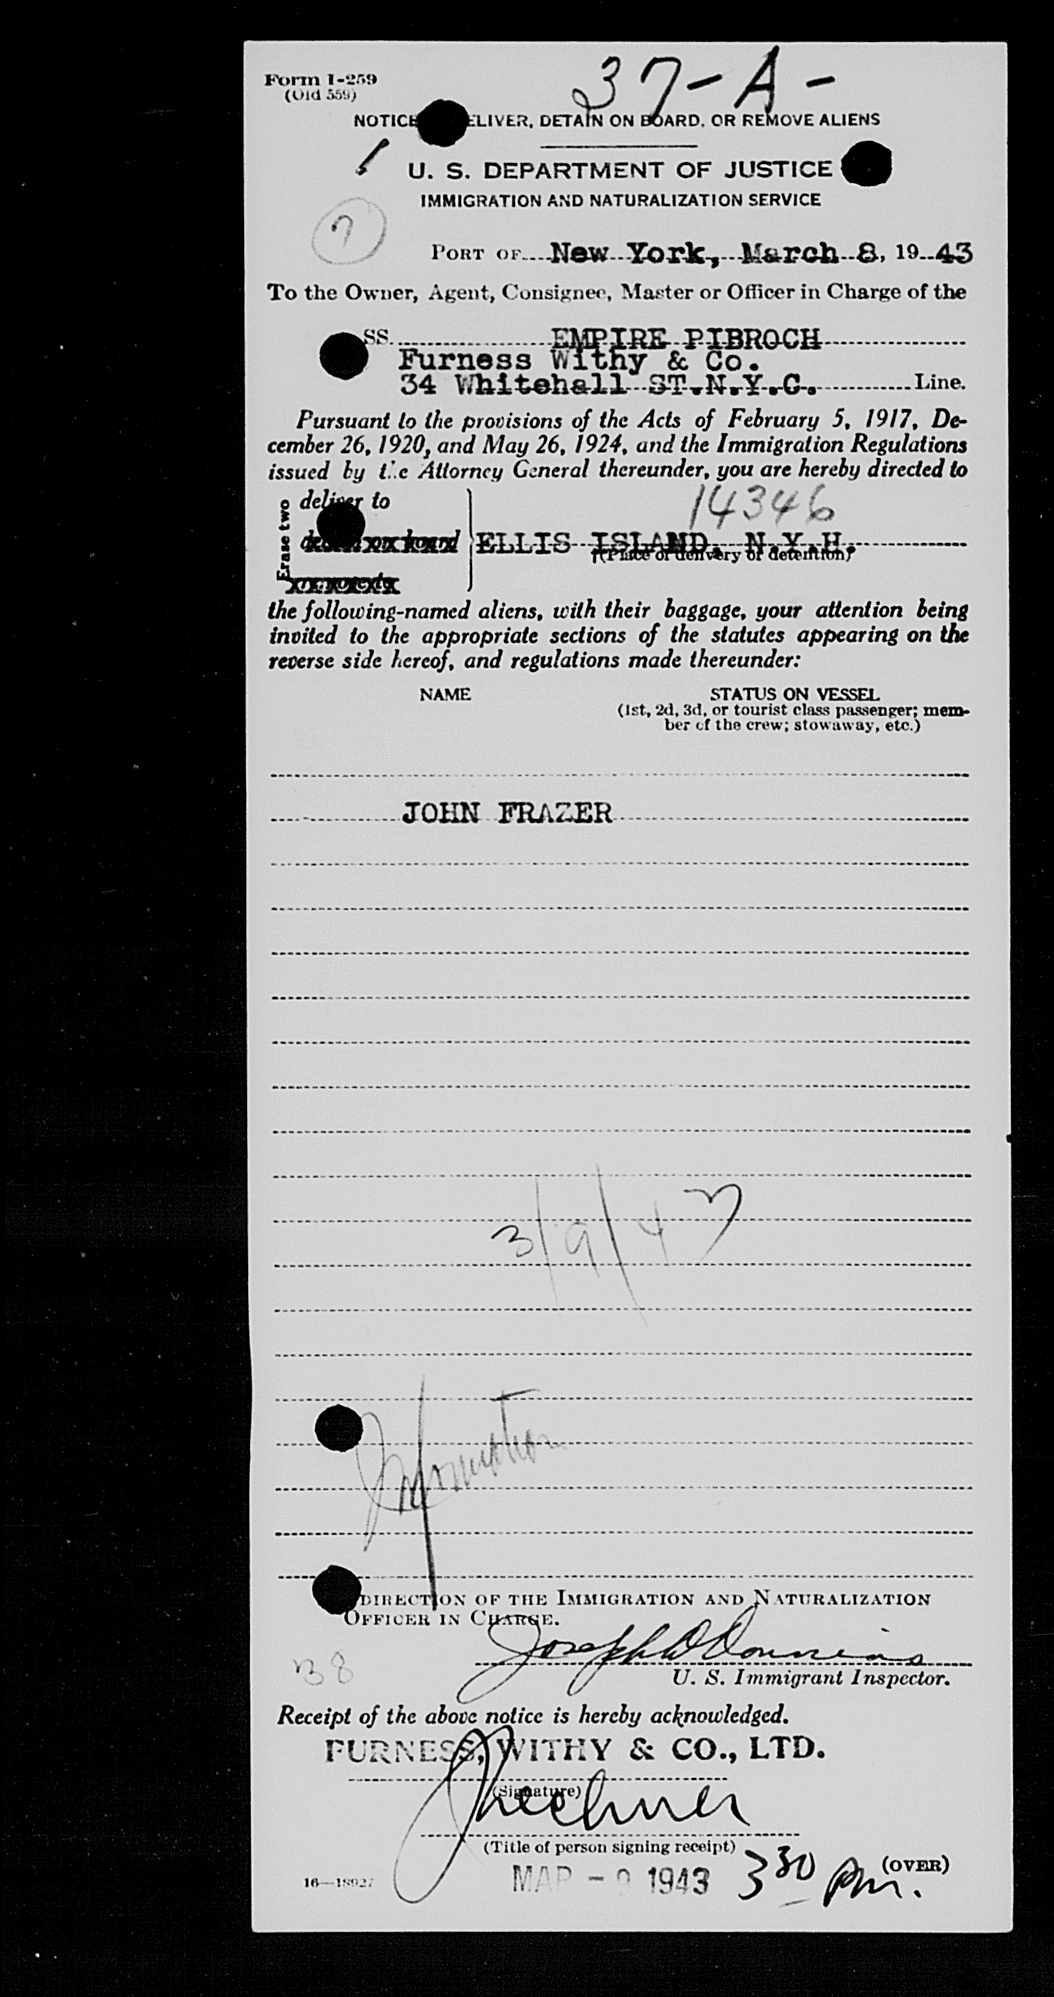 Form I-259
(Old 559)
37-A-
NOTICE ELIVER, DETAIN ON BOARD, OR REMOVE ALIENS
U. S. DEPARTMENT OF JUSTICE
IMMIGRATION AND NATURALIZATION SERVICE
7
PORT OF New York, March 8, 1943
To the Owner, Agent, Consignee, Master or Officer in Charge of the
SS. EMPIRE PIBROCH
Furness Withy & Co.
34 Whitehall ST.N.Y.C. Line.
Pursuant to the provisions of the Acts of February 5, 1917, De-
cember 26, 1920, and May 26, 1924, and the Immigration Regulations
issued by the Attorney General thereunder, you are hereby directed to
14346
Erase two
deliver to
ELLIS ISLAND, N.Y.H.
(Place of delivery or detention)
the following-named aliens, with their baggage, your attention being
invited to the appropriate sections of the statutes appearing on the
reverse side hereof, and regulations made thereunder:
NAME STATUS ON VESSEL
(1st, 2d, 3d, or tourist class passenger; mem-
ber of the crew; stowaway, etc.)
JOHN FRAZER
3/9/43
Information
DIRECTION OF THE IMMIGRATION AND NATURALIZATION
OFFICER IN CHARGE.
38
U. S. Immigrant Inspector.
Receipt of the above notice is hereby acknowledged.
FURNESS, WITHY & CO., LTD.
(Signature)
(Title of person signing receipt)
(OVER)
16—18927
MAR - 9 1943 3 30 pm.